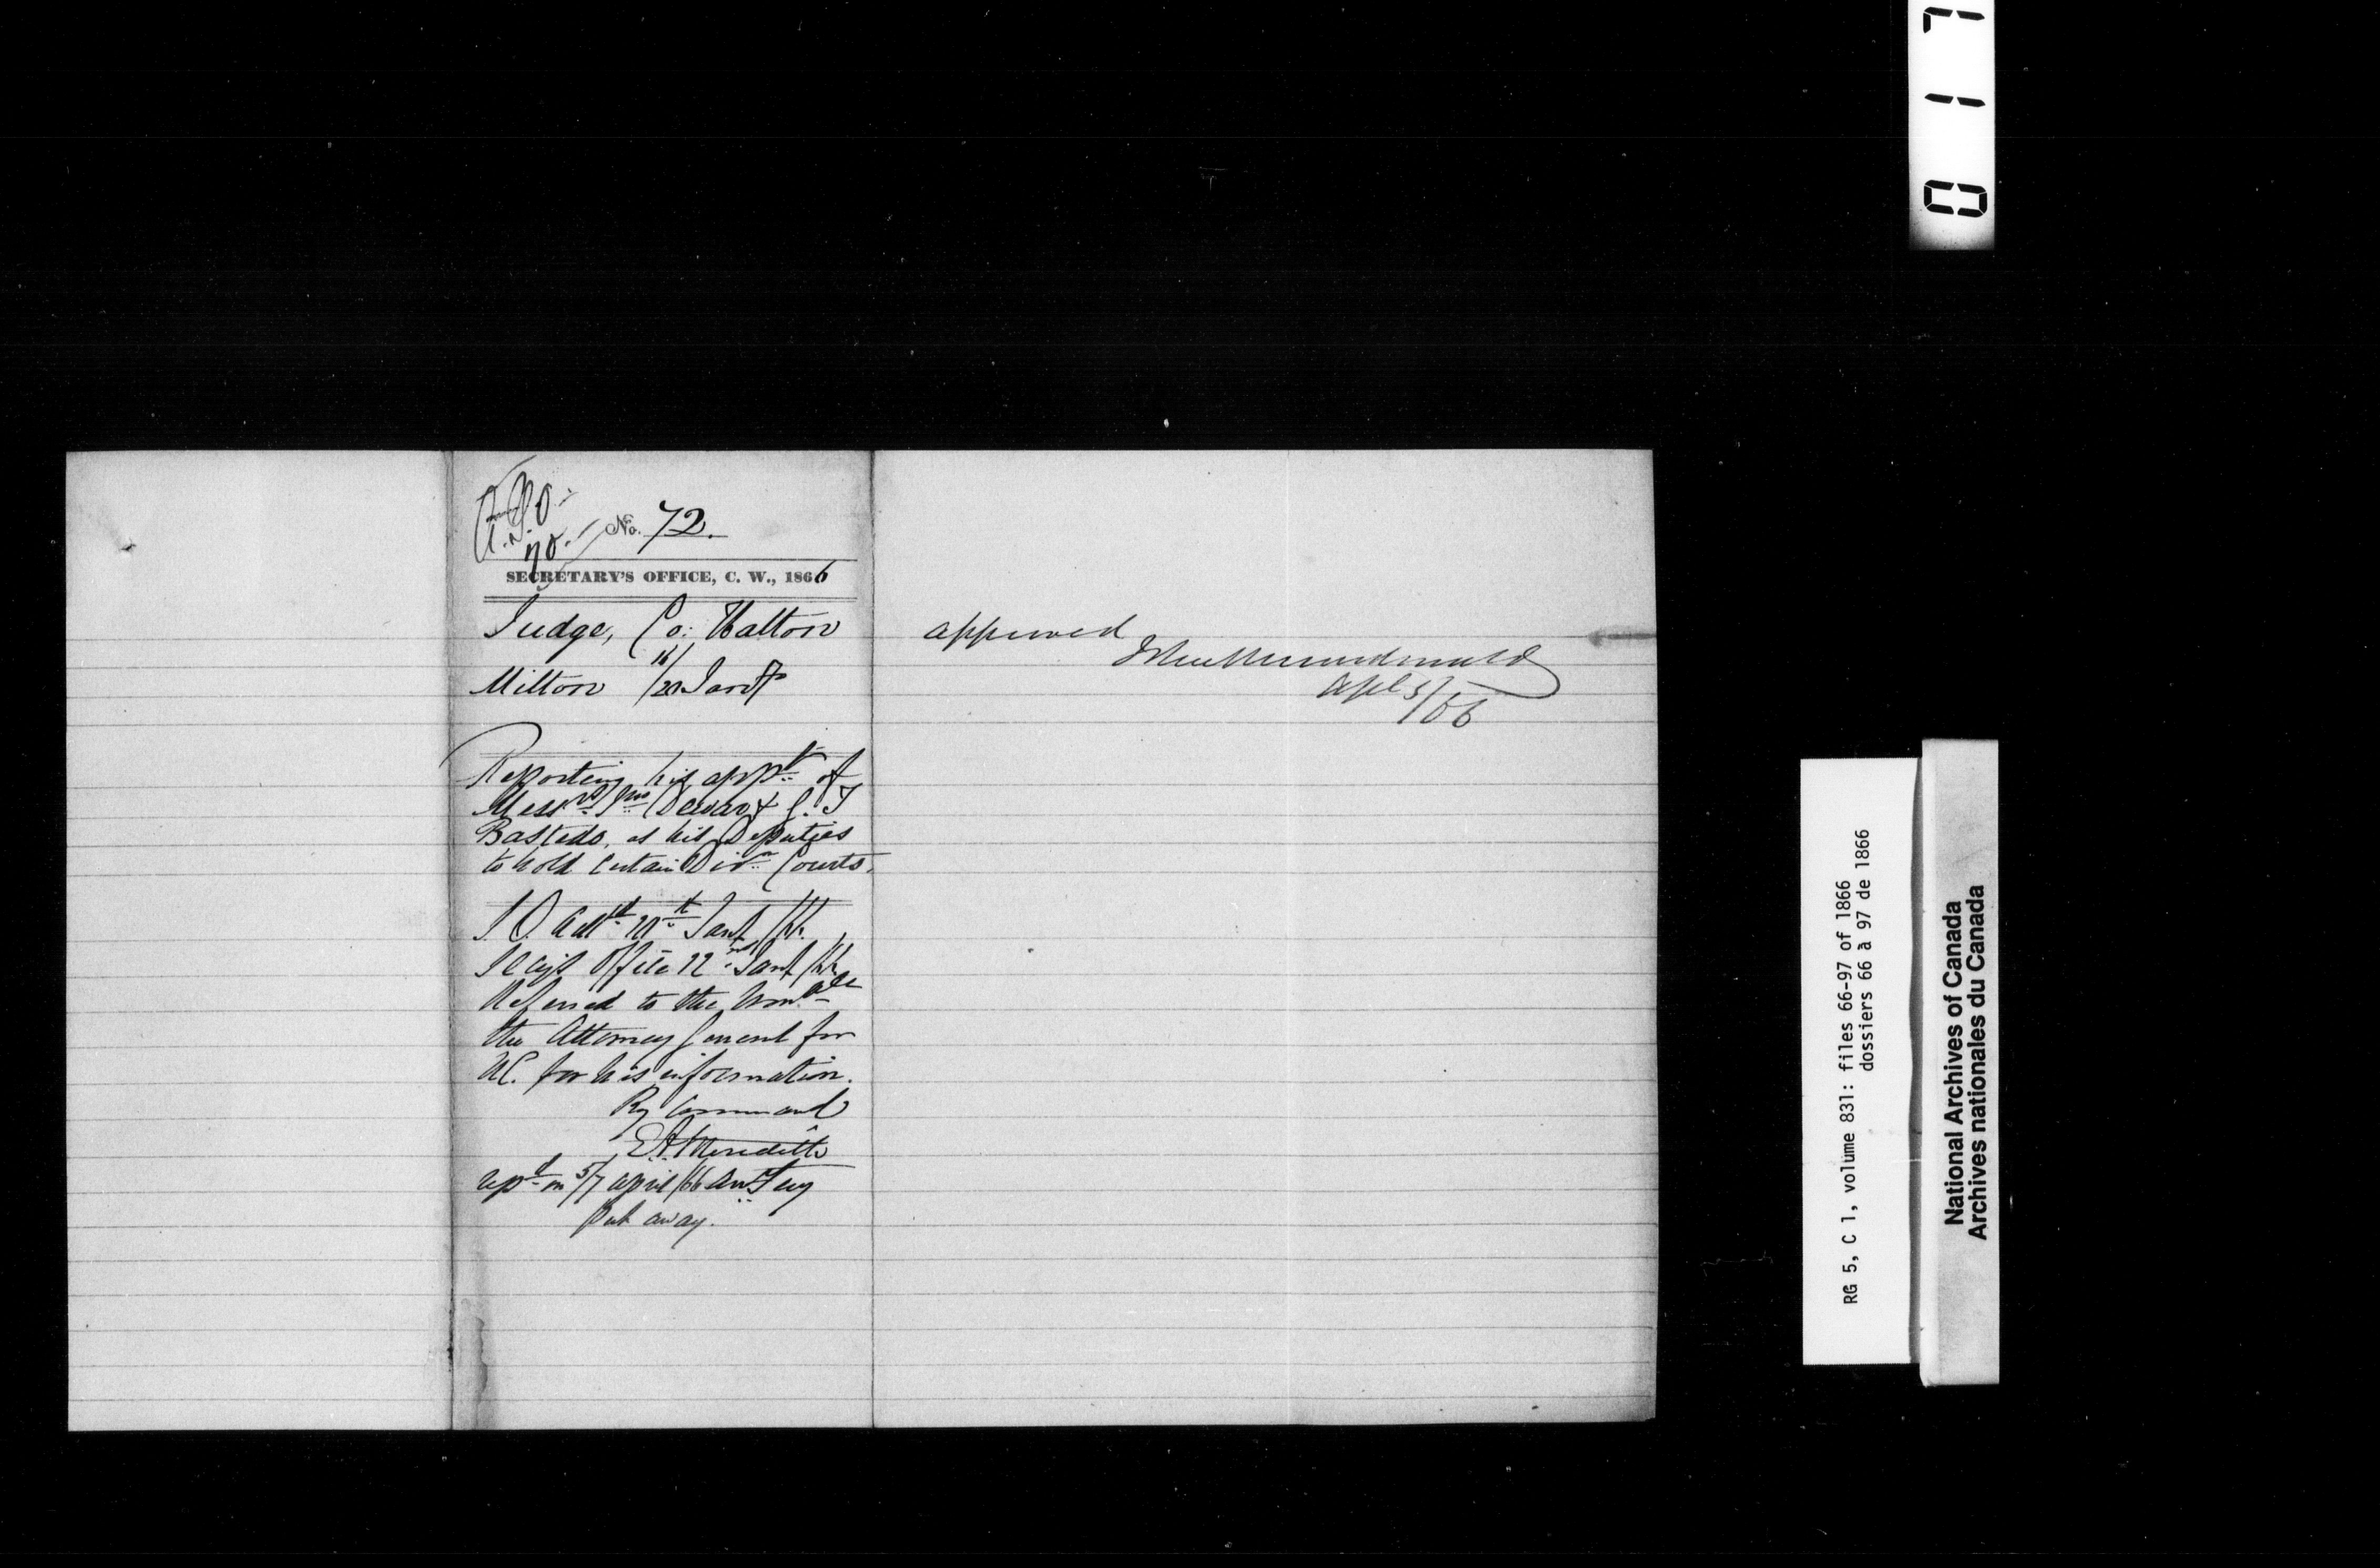 No. 72.
SECRETARY'S OFFICE, C. W., 1866
Judge, Co: Halton
Milton 16/20 Jany
Reporting his appt of
Messrs Jno Dewar & G. T
Bastedo, as his Deputies
to hold certain Divn Courts.
Jany /66
Secys Office 22nd Jany /66
Referred to the Honble
the Attorney General for
UC. for his information.
By Command
E A Meredith
5/7 April /66
Put away.
approved
John A Macdonald
Apl 5/66
0 1 7
RG 5, C 1, volume 831: files 66-97 of 1866
dossiers 66 à 97 de 1866
National Archives of Canada
Archives nationales du Canada